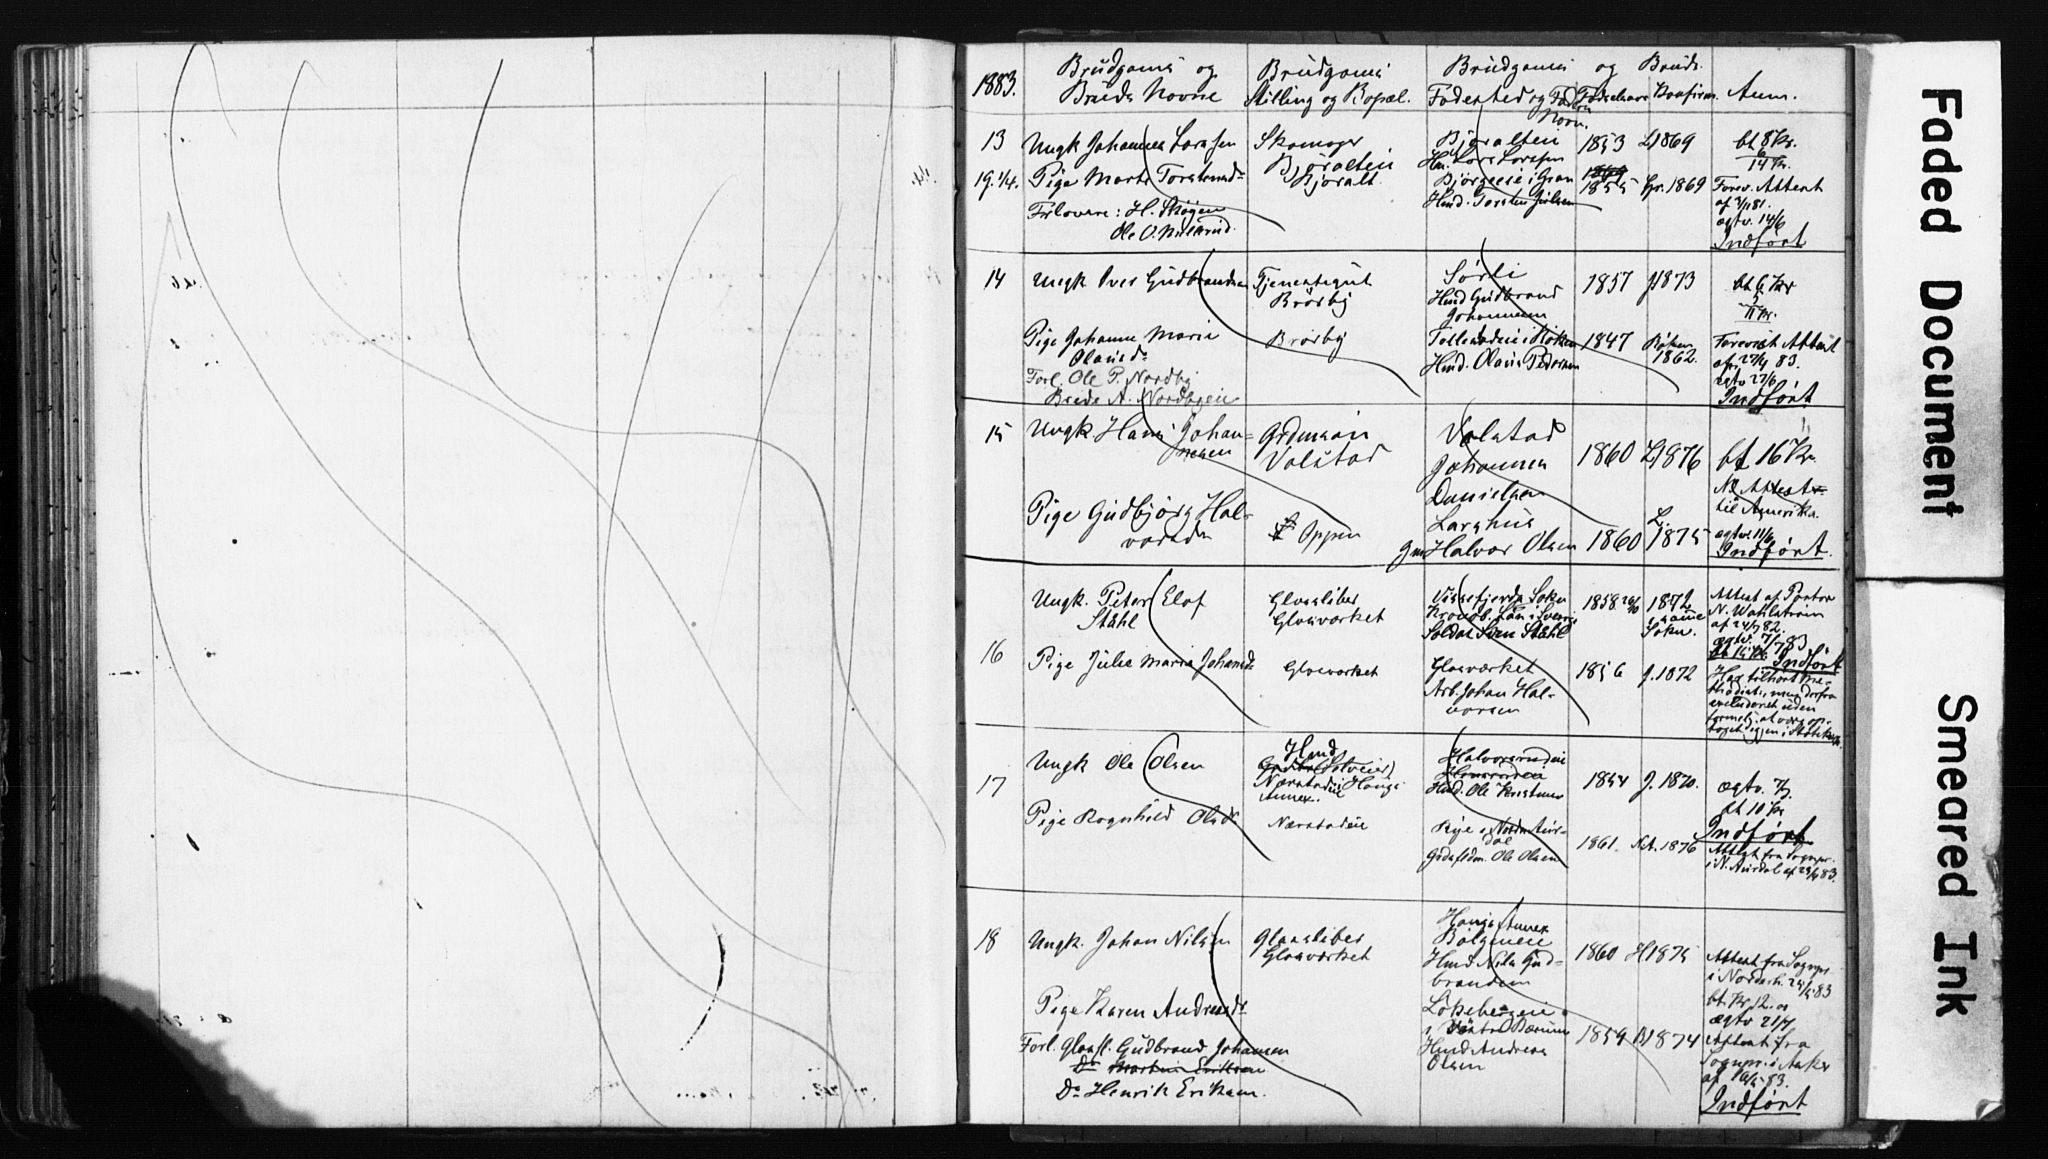 1883.
Brudgoms og
Bruds Navne
Brudgoms
Stilling og Bopæl.
Brudgoms og Bruds
Fødested og Faders
Navn.
Fødselsaar Konfirm.
Anm.
13
19. 1/4.
Ungk Johannes Larsen
Pige Marte Torstensdr
Forlovere: H. Skøgen
Ole O.
Skomager
Bjøralteie
Bjøralt.
Bjøralteie
Hm. Lars Larsen
i Gran
Hmd. Torsten
1853
1855
J. 1869
Gr. 1869
bt 8 Kr.
6
14 Kr.
Forev. Attest
af 3/11 81.
ægtv. 14/6
Indført
14
Ungk Iver Gudbrandsen
Pige Johanne Marie
Olavsdr
Forl. Ole P. Nordby
Brede A. Nordbyeie
Tjenestegut
Brørby
Brørby
Sørli
Hmd Gudbrand
Johannesen
i Røken
Hmd. Olavs Pedersen
1857
1847
J1873
Røken
1862.
bt 6 Kr
5
11 Kr.
Forevist Attest
af 27/4 83.
ægtv 27/6
Indført
15
Ungk. Hans Johan-
nesen
Pige Gudbjørg Hal-
vorsdr
Grdmsøn
Volstad
Oppen
Volstad
Johannes
Danielsen
Larshus
Gm Halvor Olsen
1860
1860
J1876
L.
1875
bt 16 Kr.
NB Attest
til Amerika.
ægtv. 11/6
Indført.
16
Ungk. Peter Elof
Ståhl
Pige Julie Marie Johansdr
Glassliber
Glasværket
Glasværket
Vissefjerda Sokn
Kronob. Län i Sverrig
Soldat Sven Ståhl
Glasværket
Arb. Johan Hal-
vorsen
1858
1856
1872
samme
Sokn.
J. 1872
Attest af Pastor
N. Wahlström
af 24/7 82.
ægtv. 7/7 83
Indført
Har tilhørt Me-
thodist., men derfra
exkluderet uden
17
Ungk Ole Olsen
Pige Ragnhild Olsdr
Hmd
Næsstadeie i Haugs
Annex.
Næsstadeie
Halvorsrudeie
Hmd. Ole Kristensen
Rije i Nordre Aur-
dal
Grdafsdm. Ole Olsen
1854
1861.
J. 1870.
N.A. 1876
ægtv. 7/7
bt 10 Kr
Indført
Attest fra Sognepr.
i N. Aurdal af 23/4 83.
18
Ungk. Johan Nilsen
Pige Karen Andreasdr
Forl. Glassl. Gudbrand Johansen
Do Martin Eriksen
Do Henrik Eriksen.
Glassliber
Glasværket
Haugs Annex
Hmd Nils Gud-
brandsen
Løkebergeie
i Vestre Bærum
Hmd Andreas
Olsen
1860
1859
H1875
B1874
Attest fra Sognepr.
i Norderh. 24/5 83
bt. Kr 12.00
ægtv 21/7
Attest fra
Sognepr. i Asker
af 16/5 83.
Indført
Faded Document
Smeared Ink